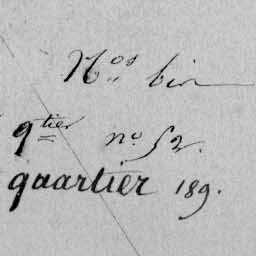 Nos bis
qtier no. 52.
quartier 189.